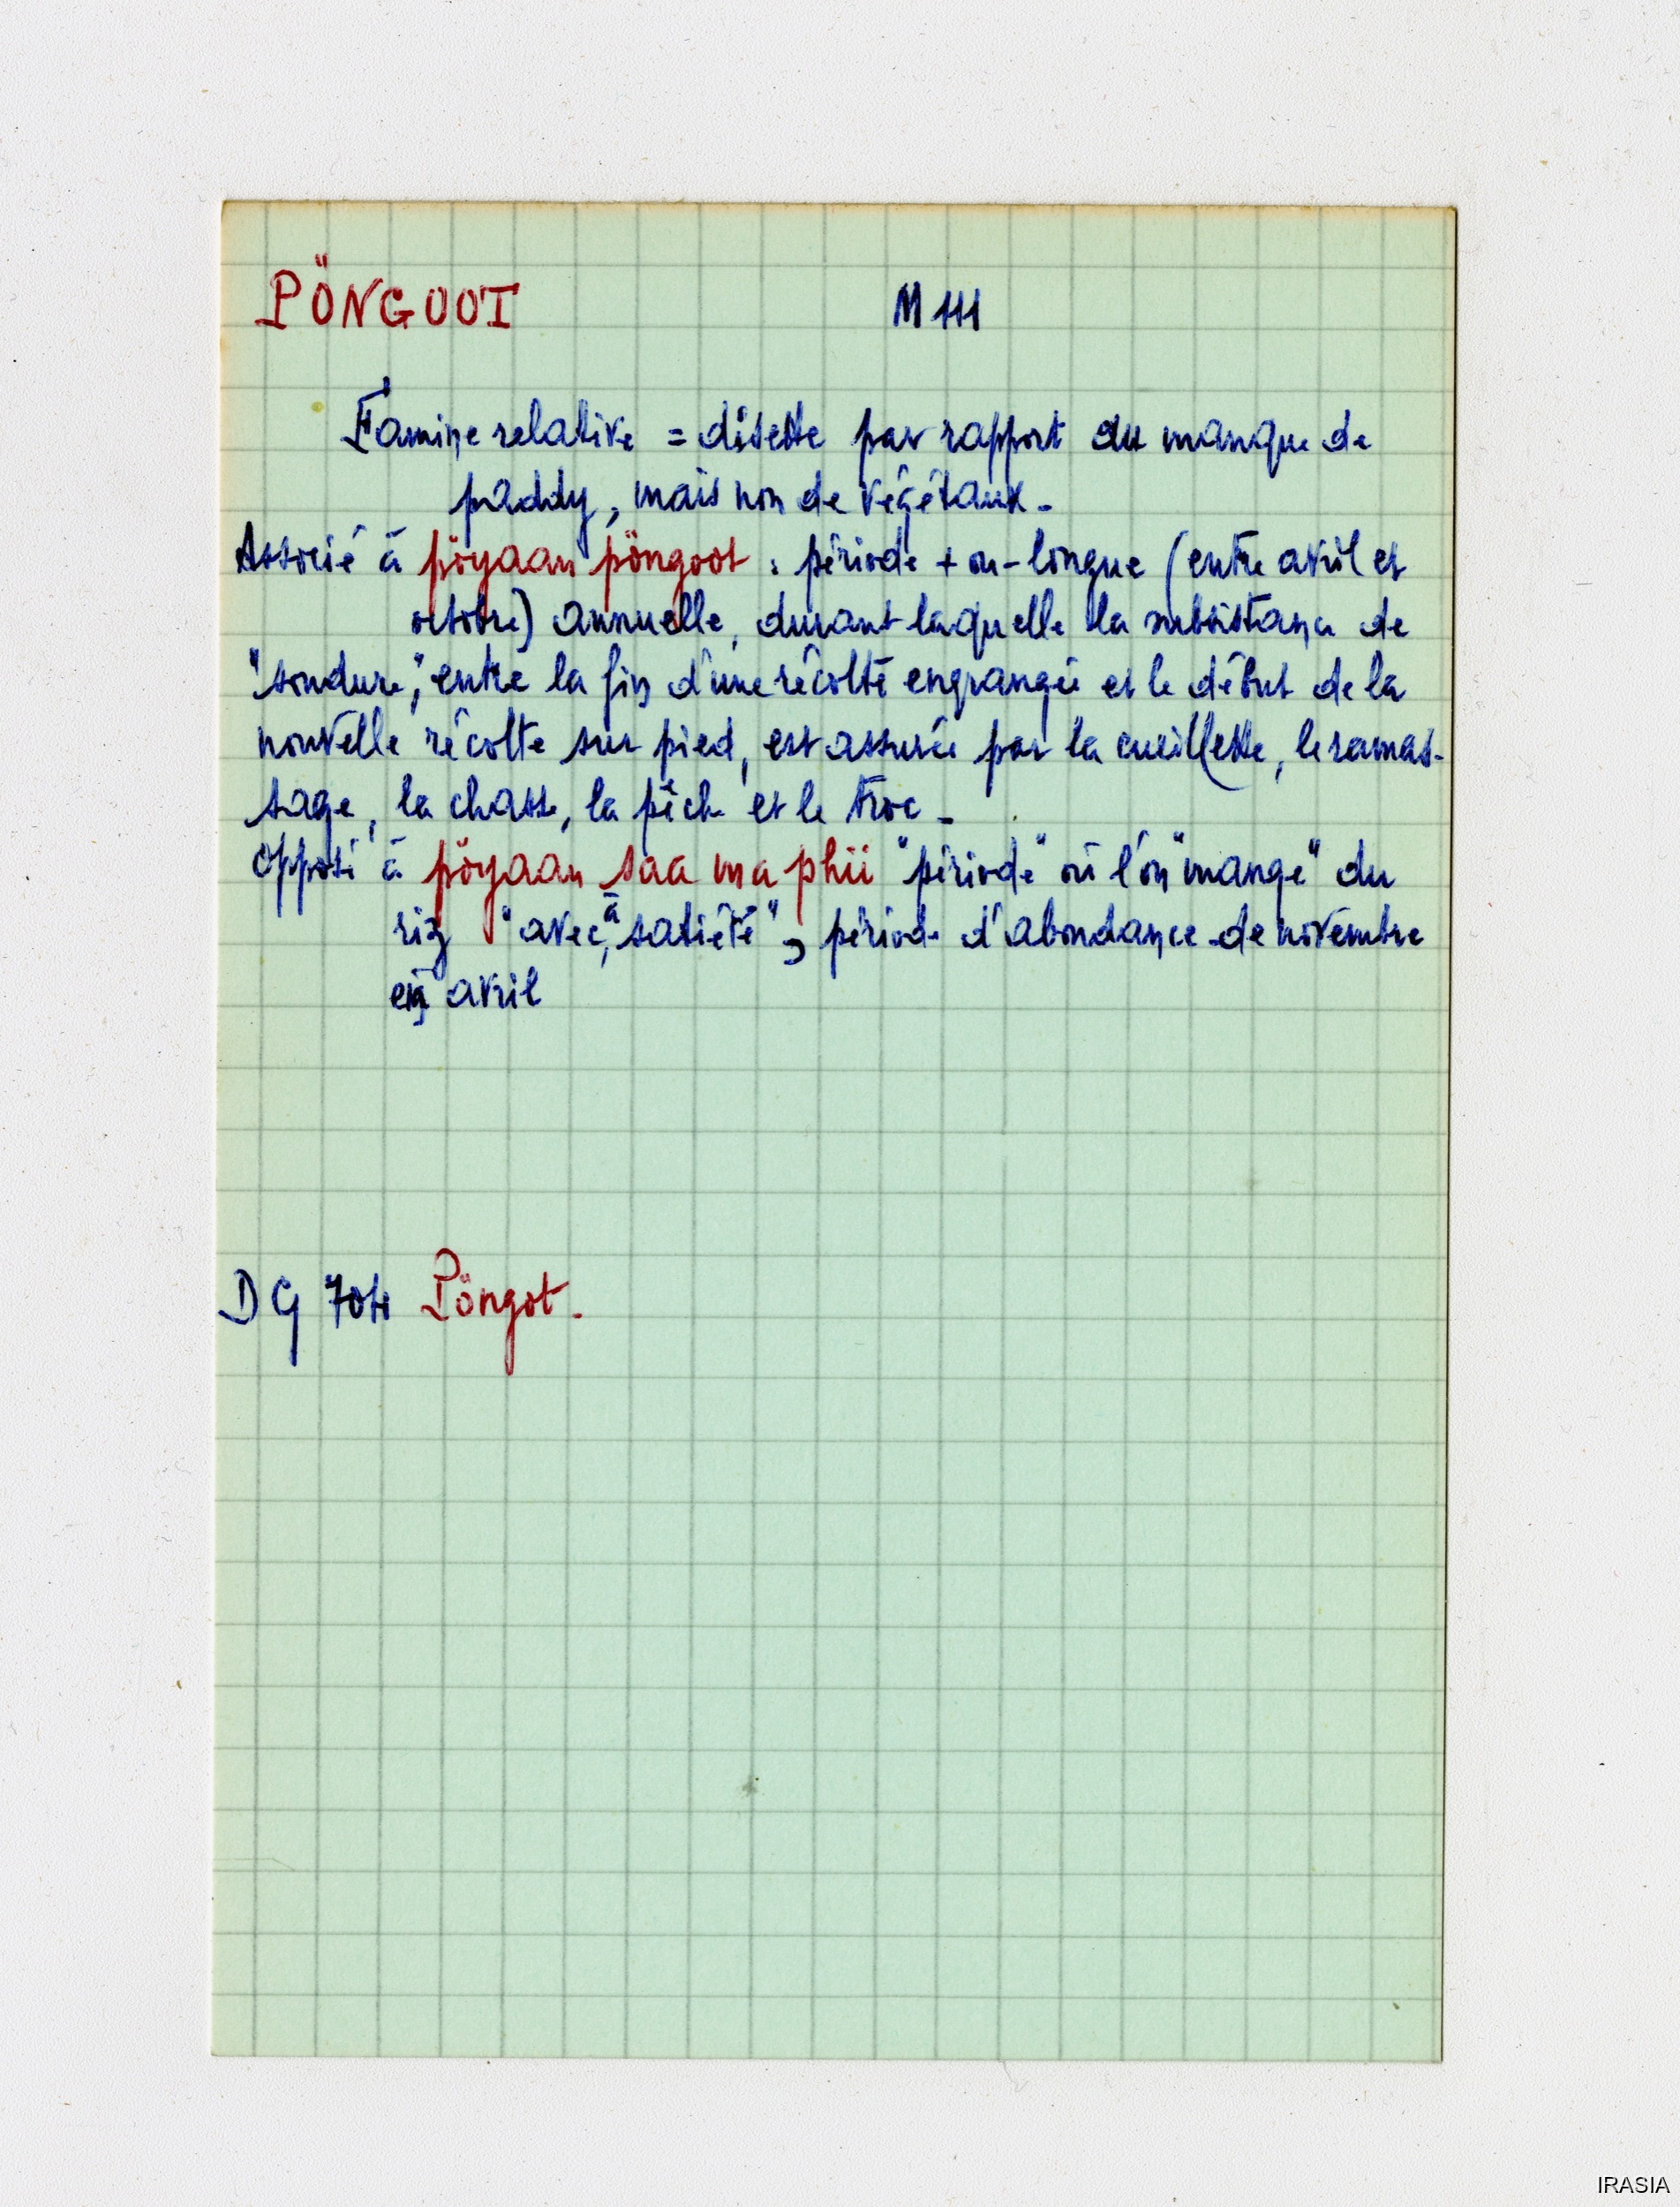 PÖNGOOT M 111
Famine relative = disette par rapport du manque de
paddy, mais non de végétaux -
Associé à pöyaan pöngoot : période + ou - longue (entre avril et
octobre) annuelle, durant laquelle la subsistance de
"soudure", entre la fin d'une récolte engrangée et le début de la
nouvelle récolte sur pied, est assurée par la cueillette, le ramas-
sage, la chasse, la pêche et le troc -
Opposé à pöyaan saa ma phii "période" où l'on "mange" du
riz "avec, à satiété", période d'abondance de novembre
en avril
DG 704 Pöngot -
IRASIA